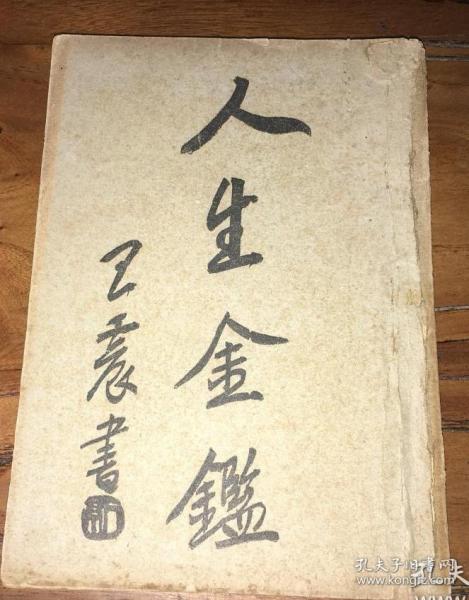 人生金鑑
王震書
孔夫子旧书网
www.kongfz.com
孔夫
www.